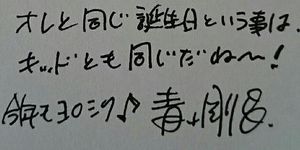 オレと同じ誕生日という事は、
キッドとも同じだね〜！
今年もヨロシク♪ 青山剛昌